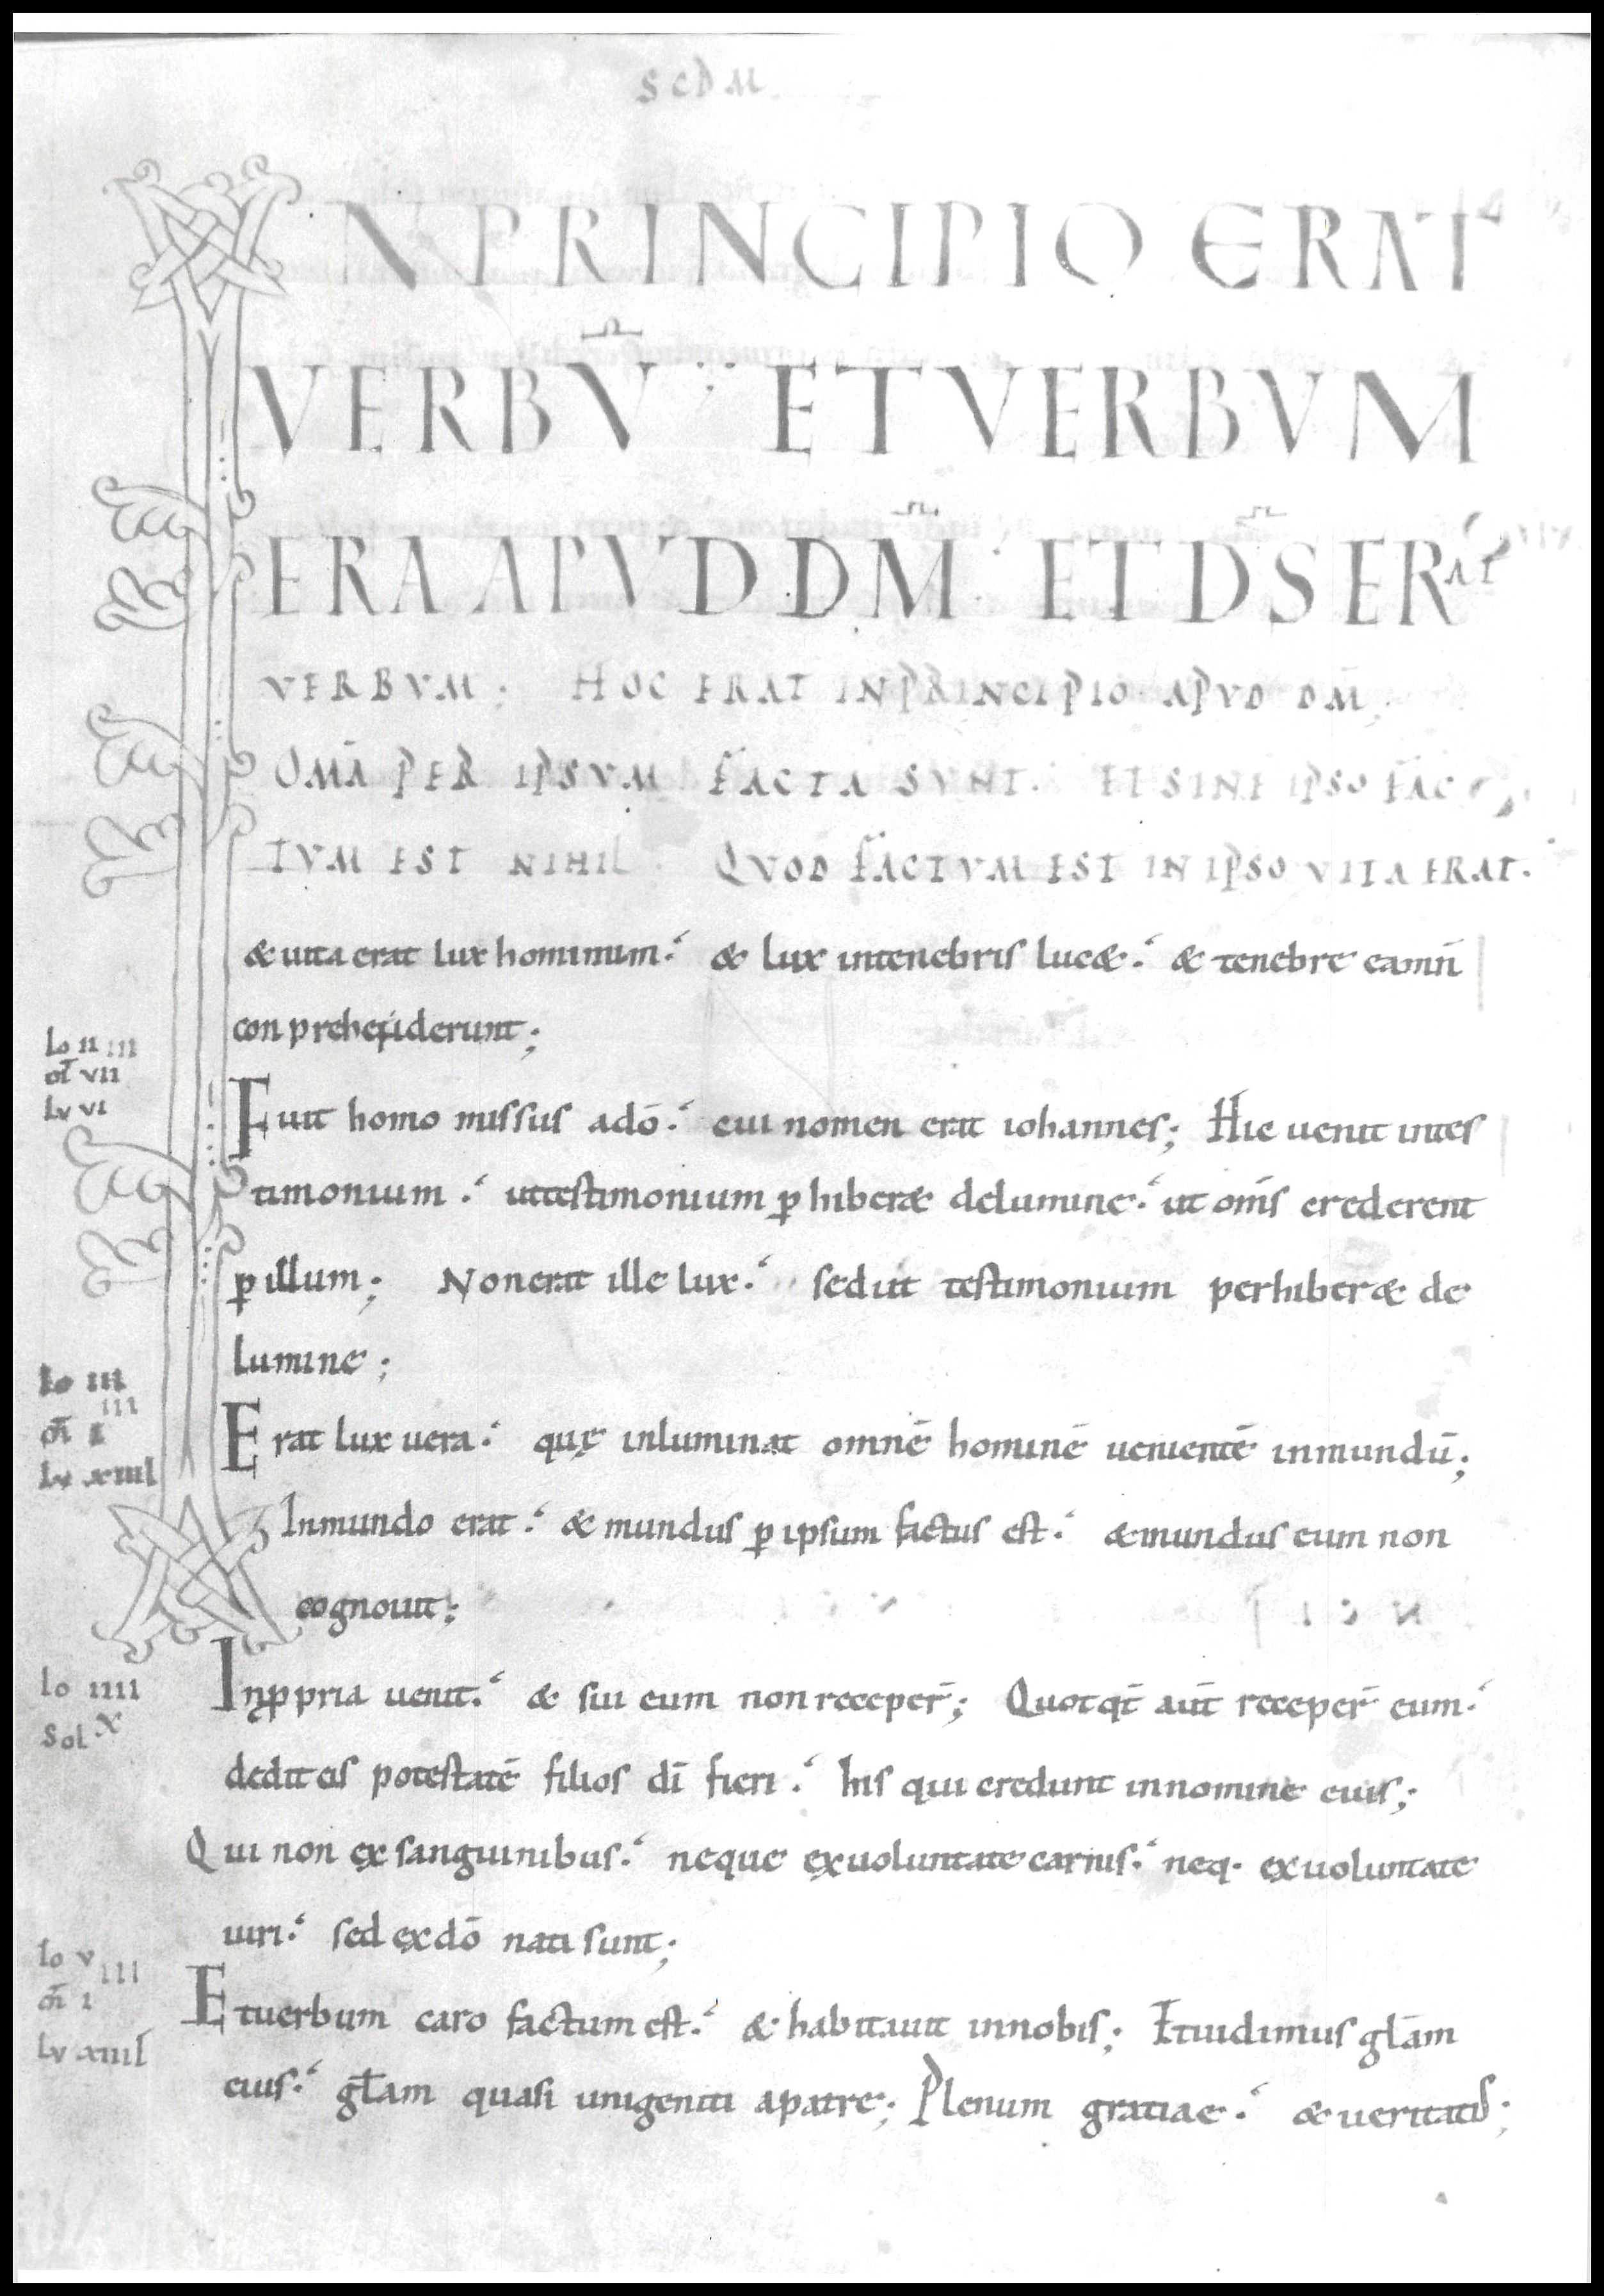 SCDM
IN PRINCIPIO ERAT
VERBV̄ ET VERBVM
ERA APVD DM̄ ET DS̄ ERAT
VERBVM; HOC ERAT IN PRINCIPIO APVD DM̄;
OMĀ PER IPSVM FACTA SVNT. ET SINE IPSO FAC
TVM EST NIHIL. QVOD FACTVM EST IN IPSO VITA ERAT.
& uita erat lux hominum. & lux intenebris luc&. & tenebre eam n̄
conprehenderunt;
Io II III
ot̄ VII
Lv VI
Fuit homo missus adō. cui nomen erat iohannes; Hic uenit intes
timonium. uttestimonium ꝑhiber& delumine. ut om̄s crederent
ꝑillum; Non erat ille lux. sed ut testimonium perhiber& de
lumine;
Io III
III
m̄ I
Lv XIIII
Erat lux uera. quę inluminat omnē hominē uenientē inmundū;
Inmundo erat. & mundus ꝑ ipsum factus est. & mundus eum non
cognouit;
Io IIII
Sol X
Inꝓpria uenit. & sui eum non receper̄; Quotqt̄ aut̄ receper̄ eum.
dedit eis potestatē filios dī fieri. his qui credunt innomine eius;
Qui non ex sanguinibus. neque exuoluntate carnis. neq. exuoluntate
uiri. sed ex dō nati sunt;
Io V III
m̄ I
Lv XIIII
Etuerbum caro factum est. & habitauit innobis; Etuidimus gl̄am
eius. gl̄am quasi unigeniti apatre; Plenum gratiae. & ueritatis;